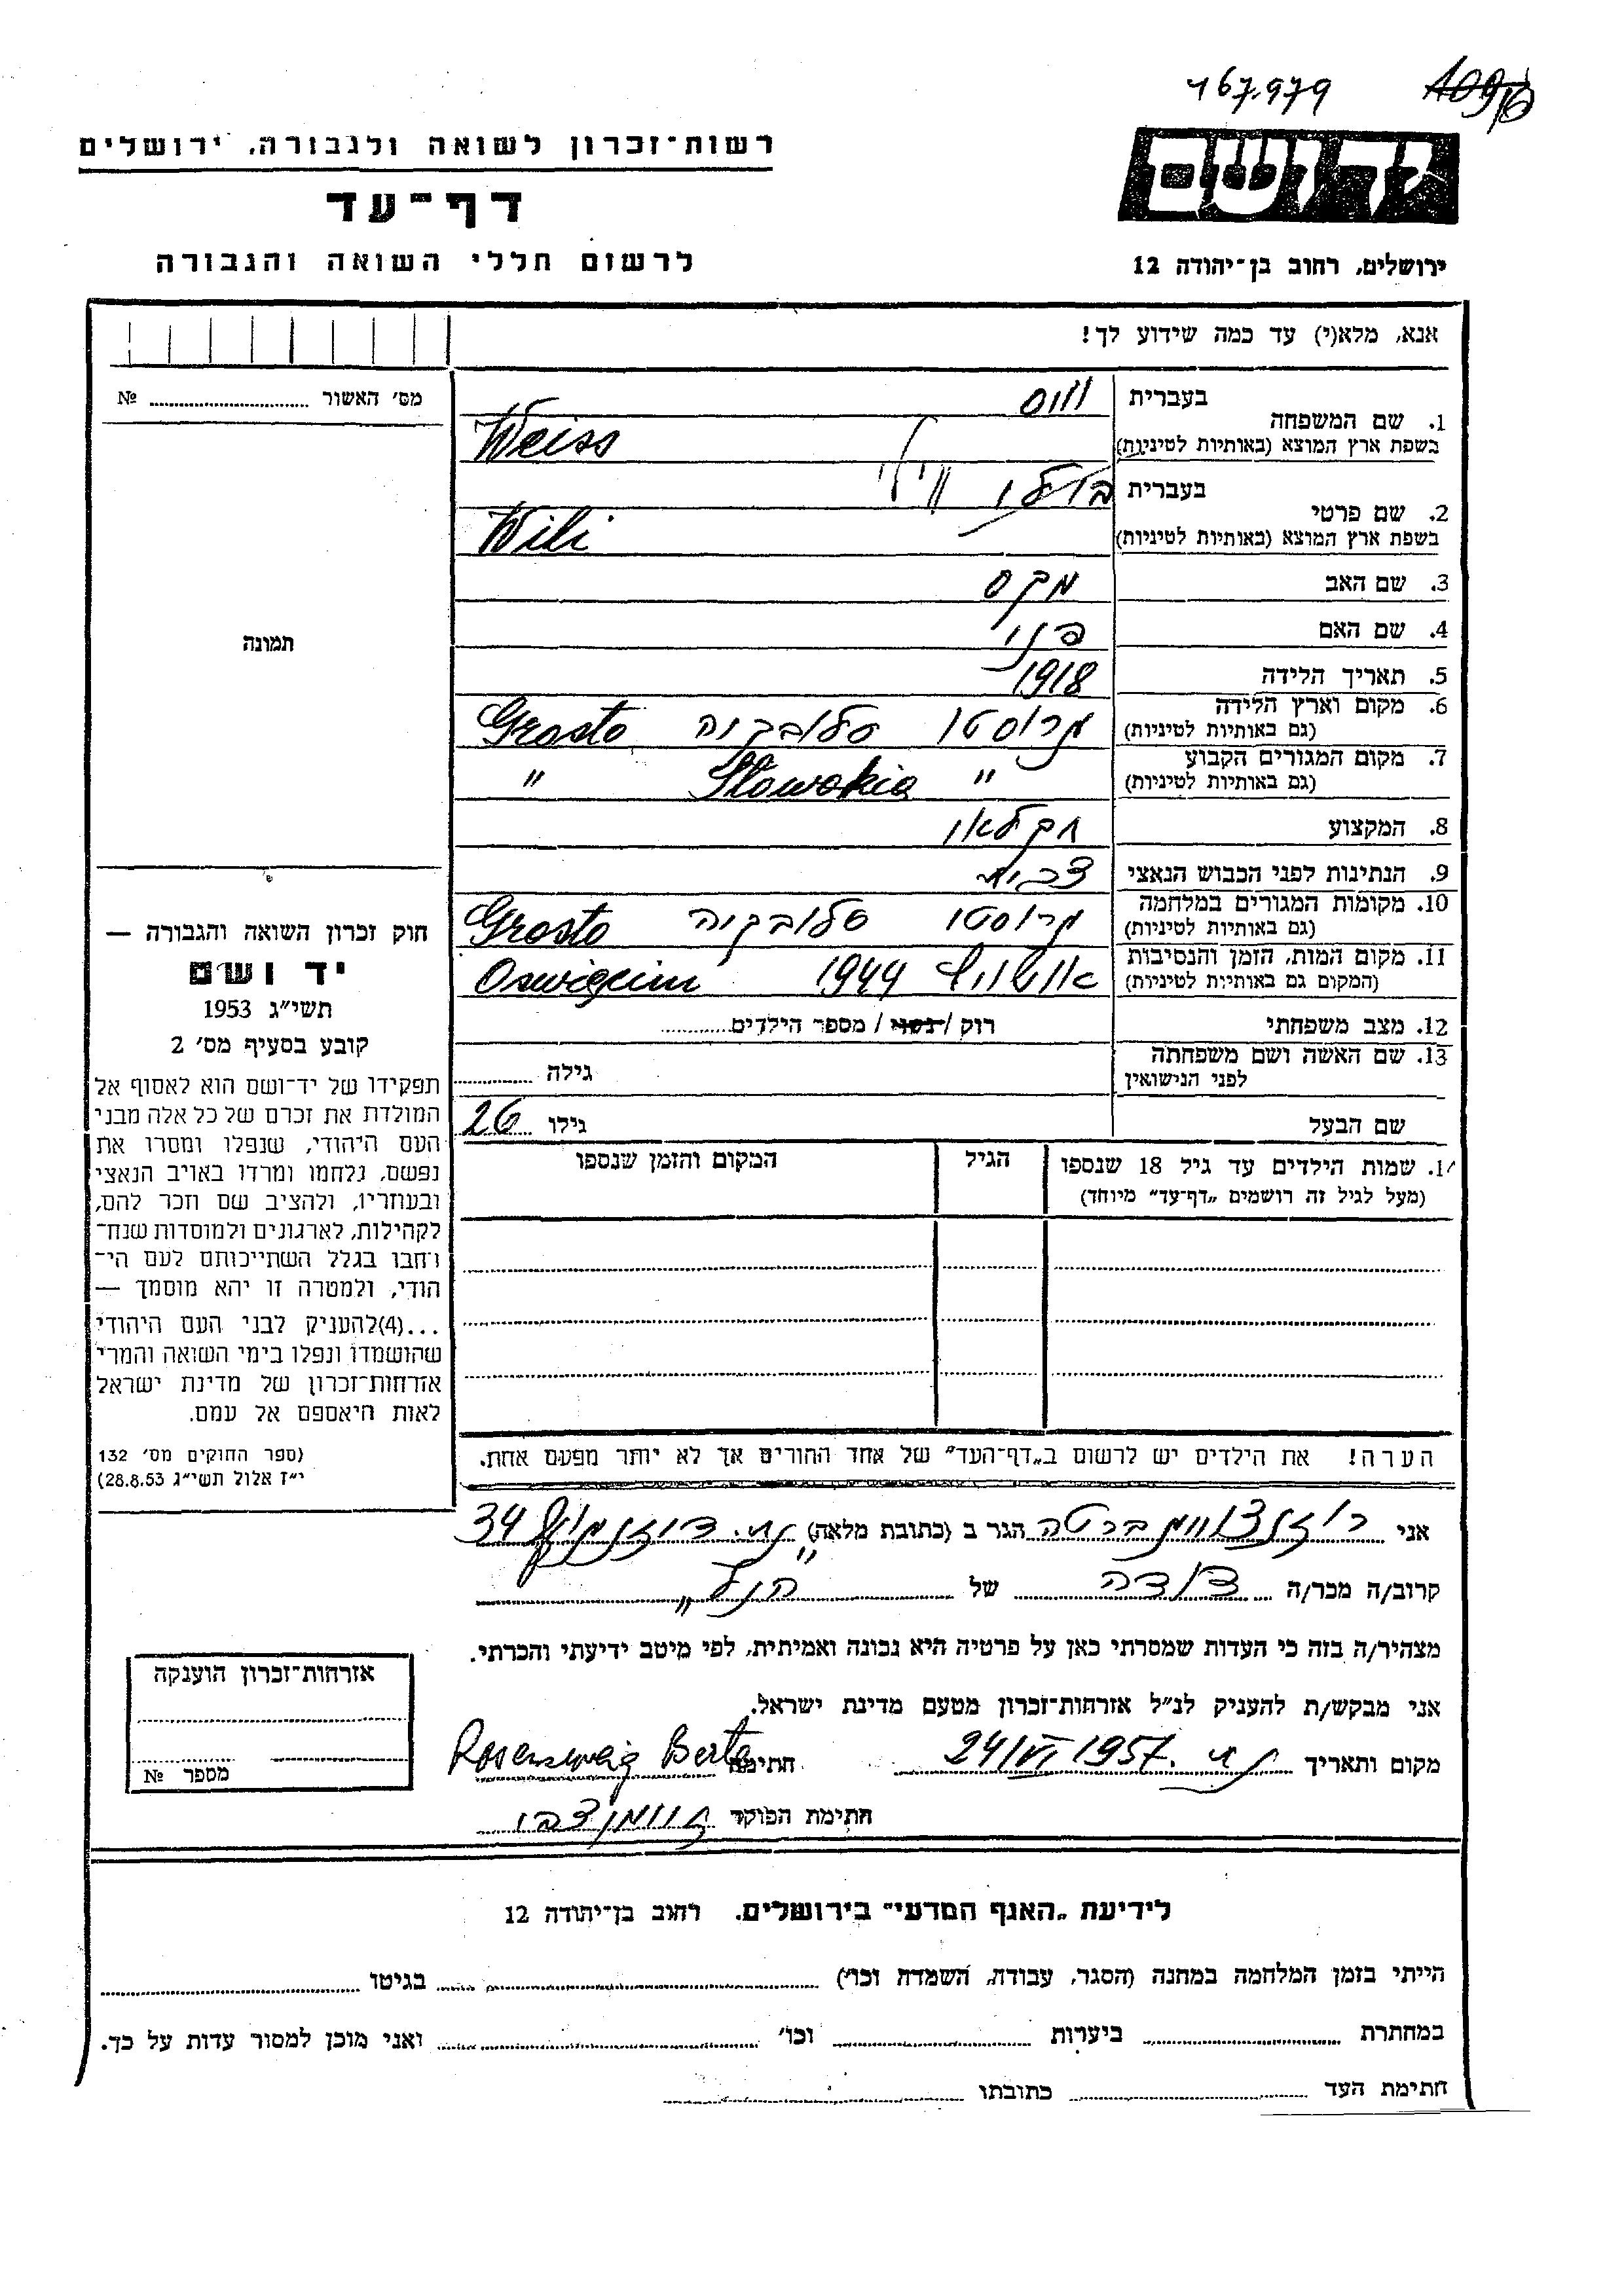 167.979
רשות-זכרון לשואה ולגבורה, ירושלים
דף-עד
לרשום חללי השואה והגבורה
יד ושם
ירושלים, רחוב בן-יהודה 12
אנא, מלא(י) עד כמה שידוע לך!
מס' האשור № 
1. שם המשפחה
בעברית ווים
בשפת ארץ המוצא (באותיות לטיניות) Weiss
2. שם פרטי
בעברית וילי
בשפת ארץ המוצא (באותיות לטיניות) Wili
3. שם האב מקס
4. שם האם פני
5. תאריך הלידה 1918
6. מקום וארץ הלידה סלובקיה Grosto
(גם באותיות לטיניות)
7. מקום המגורים הקבוע " Slowakia "
(גם באותיות לטיניות)
8. המקצוע חקלאי
9. הנתינות לפני הכבוש הנאצי
10. מקומות המגורים במלחמה סלובקיה Grosto
(גם באותיות לטיניות)
11. מקום המות, הזמן והנסיבות 1944 Oswięcim
(המקום גם באותיות לטיניות)
12. מצב משפחתי רוק / נשוי / מספר הילדים
13. שם האשה ושם משפחתה
לפני הנישואין גילה
שם הבעל גילו 26
שמות הילדים עד גיל 18 שנספו הגיל המקום והזמן שנספו
(מעל לגיל זה רושמים „דף-עד" מיוחד)
הערה! את הילדים יש לרשום ב„דף-העד" של אחד ההורים אך לא יותר מפעם אחת.
תמונה
חוק זכרון השואה והגבורה —
יד ושם
תשי"ג 1953
קובע בסעיף מס' 2
תפקידו של יד-ושם הוא לאסוף אל
המולדת את זכרם של כל אלה מבני
העם היהודי, שנפלו ומסרו את
נפשם, נלחמו ומרדו באויב הנאצי
ובעוזריו, ולהציב שם וזכר להם,
לקהילות, לארגונים ולמוסדות שנח-
רבו בגלל השתייכותם לעם הי-
הודי, ולמטרה זו יהא מוסמך —
...(4)להעניק לבני העם היהודי
שהושמדו ונפלו בימי השואה והמרי
אזרחות-זכרון של מדינת ישראל
לאות היאספם אל עמם.
(ספר החוקים מס' 132
י"ז אלול תשי"ג 28.8.53)
אני רוזנצוויג ברטה הגר ב (כתובת מלאה) ת"א דיזנגוף 34
קרוב/ה מכר/ה דודה של "הנ"ל"
מצהיר/ה בזה כי העדות שמסרתי כאן על פרטיה היא נכונה ואמיתית, לפי מיטב ידיעתי והכרתי.
אני מבקש/ת להעניק לנ"ל אזרחות-זכרון מטעם מדינת ישראל.
מקום ותאריך ת"א. 24/VI 1957 חתימה Rosenzweig Berta
חתימת הפוקד
אזרחות-זכרון הוענקה
מספר №
לידיעת „האגף המדעי" בירושלים. רחוב בן-יהודה 12
הייתי בזמן המלחמה במחנה (הסגר, עבודה, השמדה וכו') בגיטו
במחתרת ביערות וכו' ואני מוכן למסור עדות על כך.
חתימת העד כתובתו